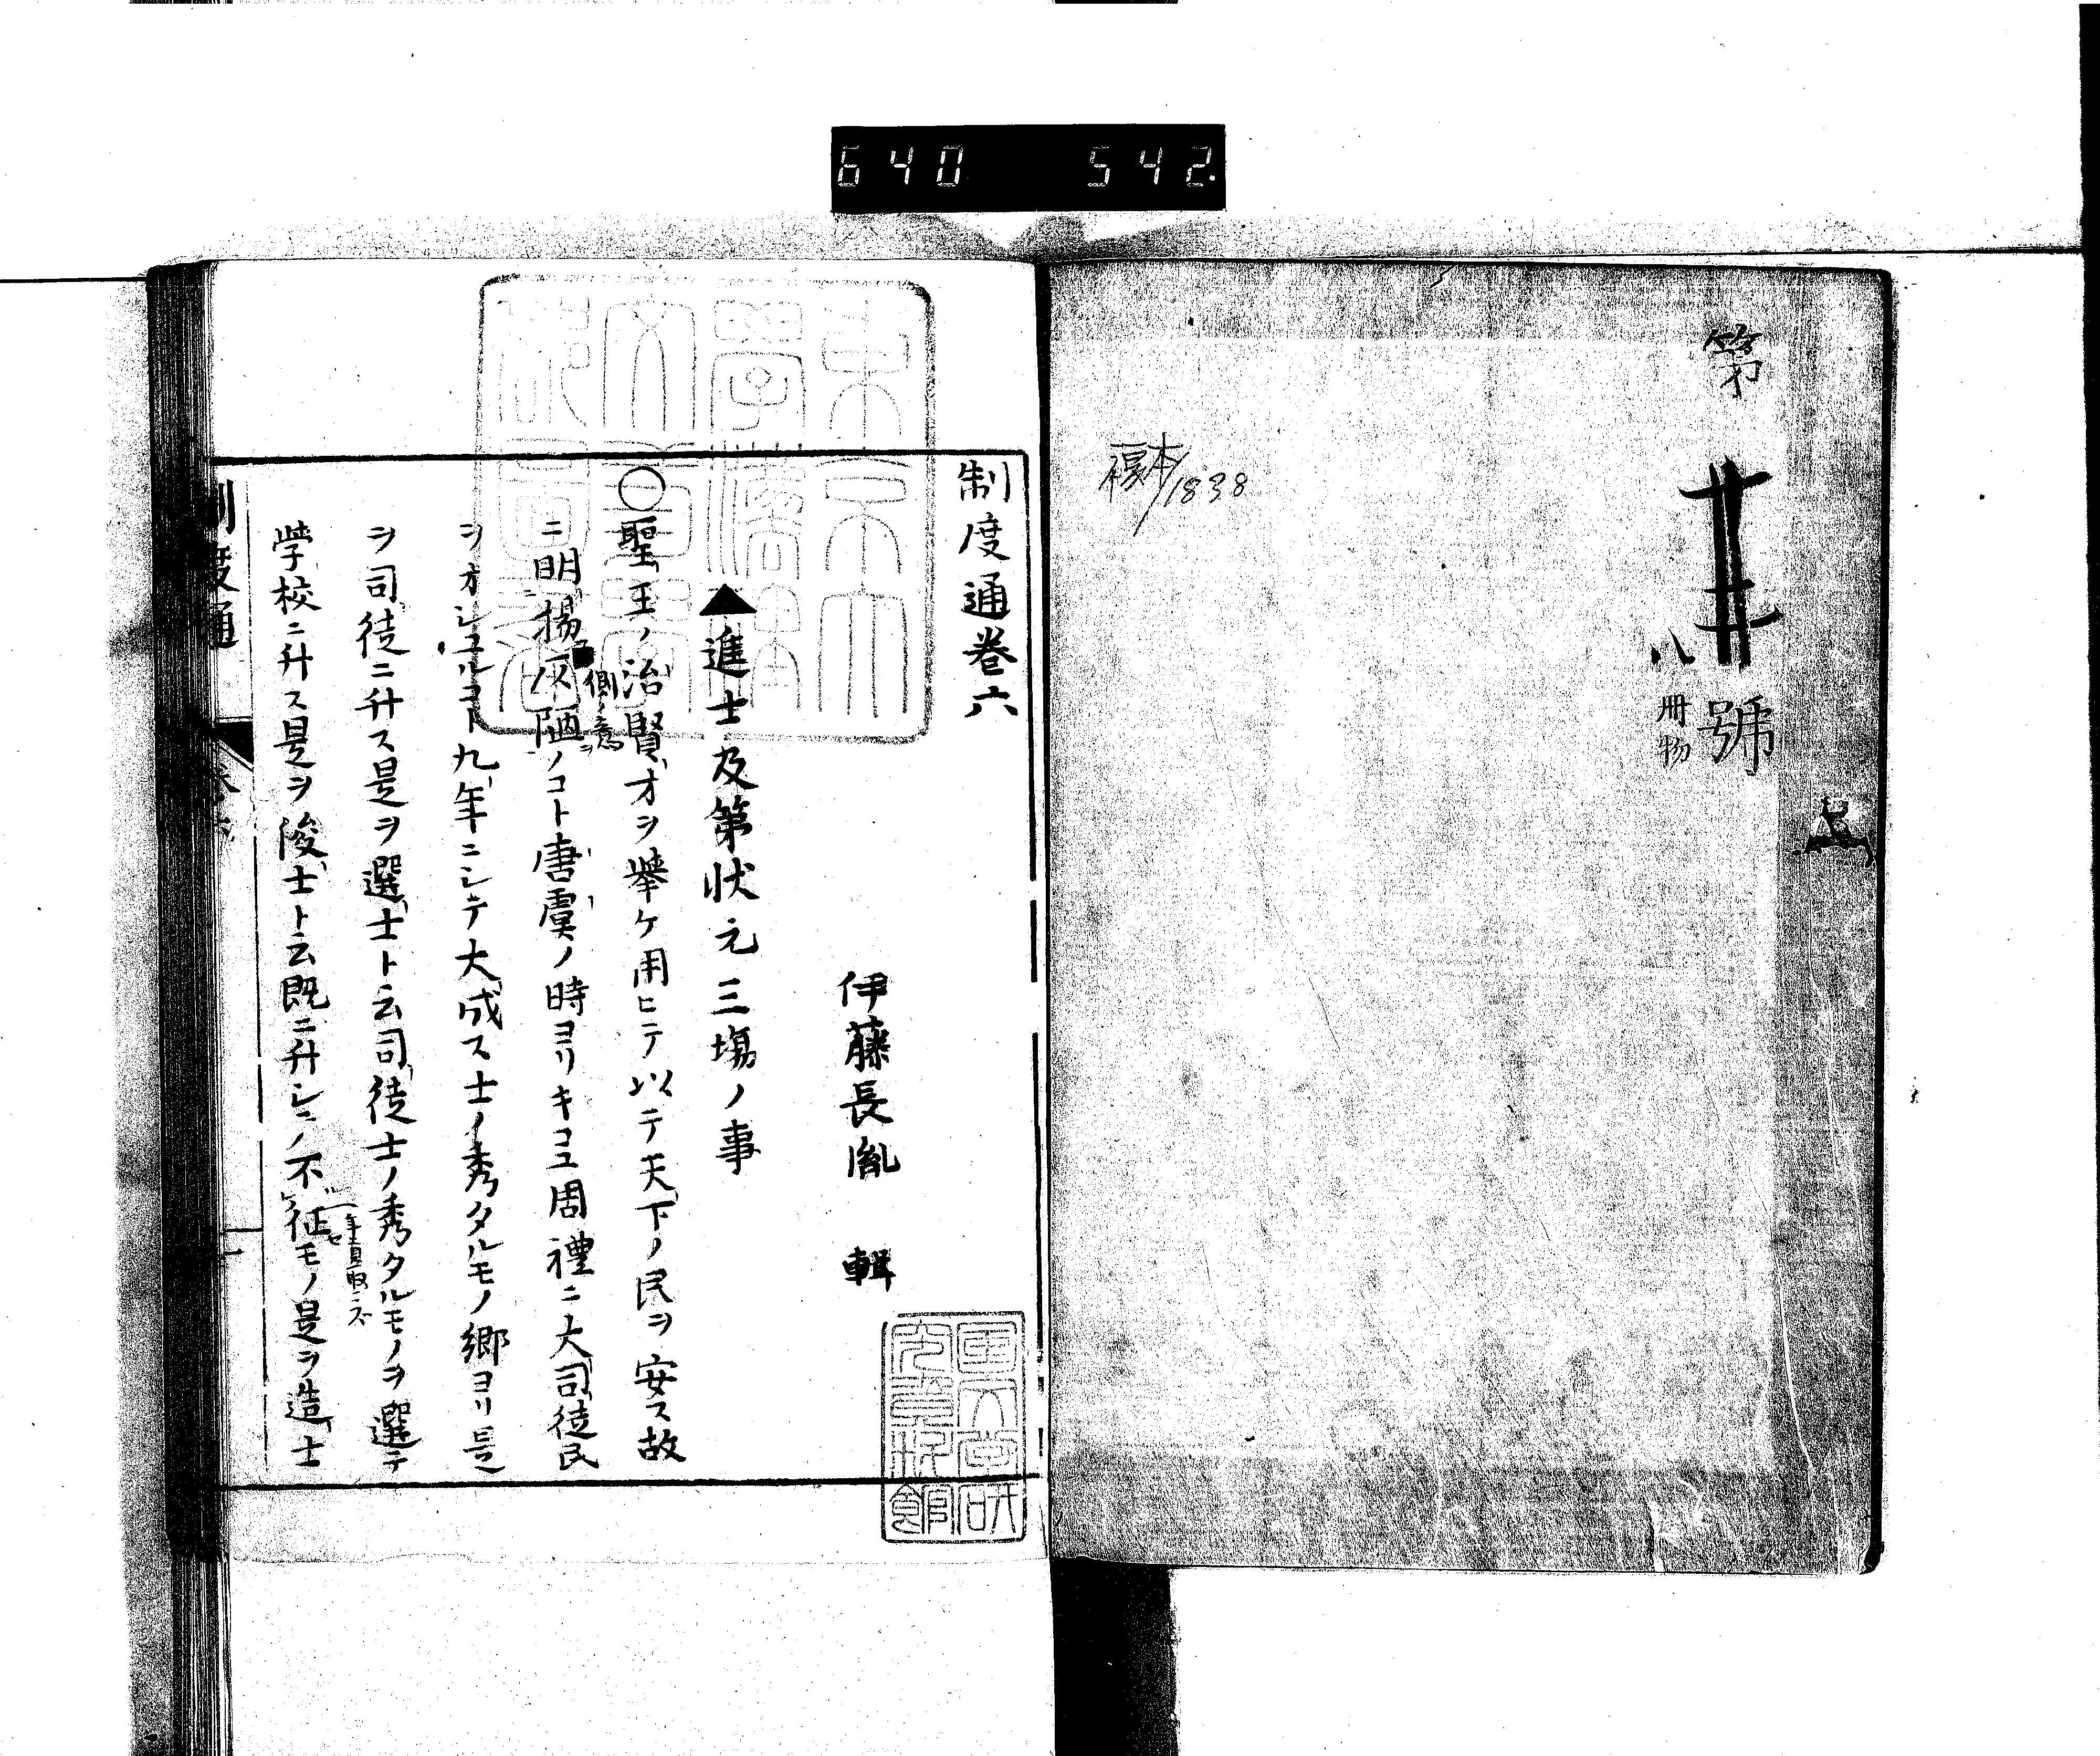 640 542
第廿号號
八冊物
複本/1838
制度通卷六
伊藤長胤 輯
▲進士及第状元三塲ノ事
○聖王ノ治賢才ヲ擧ケ用ヒテ以テ天下ノ民ヲ安ス故
ニ明揚仄陋ノコト唐虞ノ時ヨリキコユ周禮ニ大司徒民
側ノ意
ヲオシユルコト九年ニシテ大成ス士ノ秀タルモノ郷ヨリ是
ヲ司徒ニ升ス是ヲ選士ト云司徒士ノ秀タルモノヲ選テ
学校ニ升ス是ヲ俊士ト云既ニ升シテノ不征モノ是ヲ造士
制度通 卷六 一